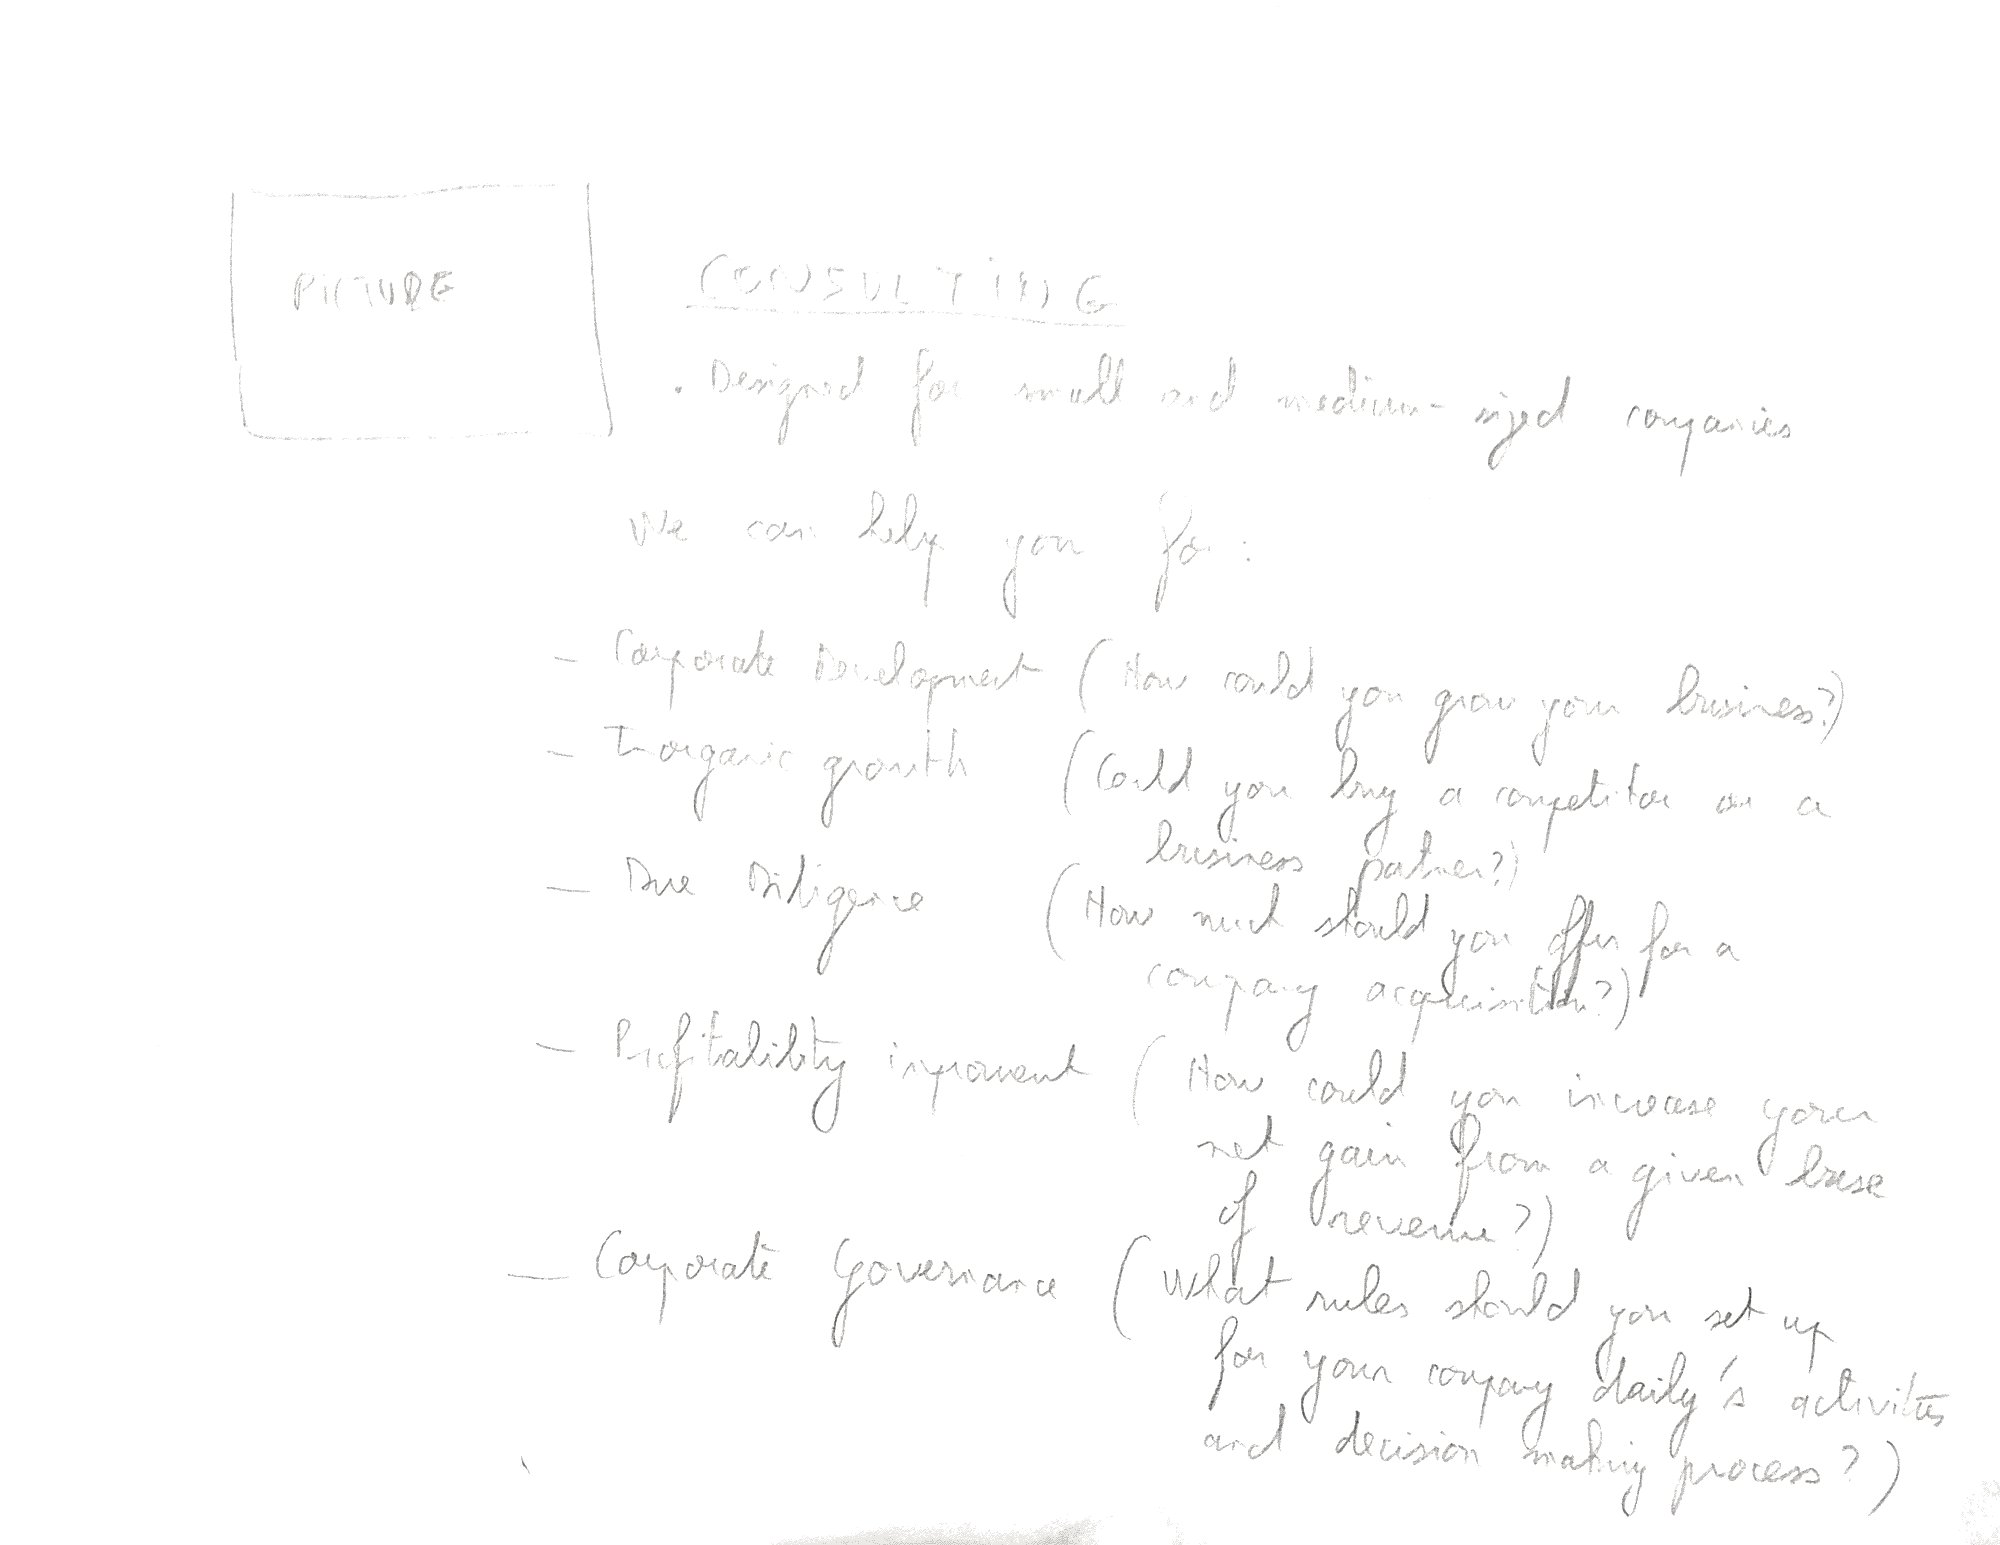 PICTURE
CONSULTING
. Designed for small and medium-sized companies
We can help you for:
- Corporate Development (How could you grow your business?)
- Inorganic growth (Could you buy a competitor or a
business partner?)
- Due Diligence (How much should you offer for a
company acquisition?)
- Profitability improvent (How could you increase your
net gain from a given base
of revenue?)
- Corporate Governance (What rules should you set up
for your company daily's activities
and decision making process?)